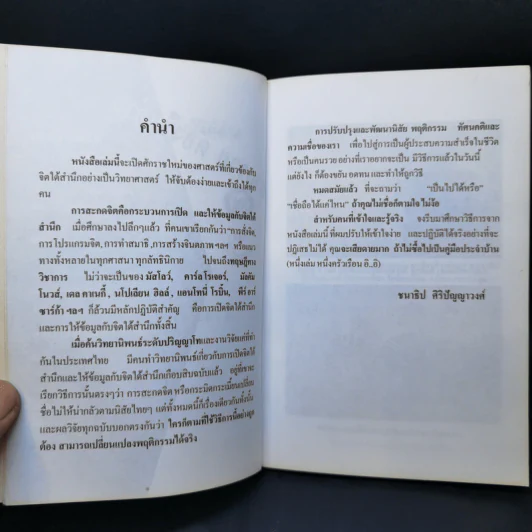 คำนำ
หนังสือเล่มนี้จะเปิดศักราชใหม่ของศาสตร์ที่เกี่ยวข้องกับ
จิตใต้สำนึกอย่างเป็นวิทยาศาสตร์ ให้จับต้องง่ายและเข้าถึงได้ทุก
คน
การสะกดจิตคือกระบวนการเปิด และให้ข้อมูลกับจิตใต้
สำนึก เมื่อศึกษาลงไปลึกๆแล้ว ที่คนเขาเรียกกันว่า "การสั่งจิต,
การโปรแกรมจิต, การทำสมาธิ, การสร้างจินตภาพ ฯลฯ" หรือแนว
ทางทั้งหลายในทุกศาสนา ทุกลัทธินิกาย ไปจนถึงทฤษฎีทาง
วิชาการ ไม่ว่าจะเป็นของ มัสโลว์, คาร์ล โรเจอร์,
โนวส์, เดล คาเนกี้, นโปเลียน ฮิลล์, แอนโทนี่ ร็อบบิ้น,
ซาร์ก้า ฯลฯ ก็ล้วนมีหลักปฏิบัติสำคัญ คือการเปิดจิตใต้สำนึก
และการให้ข้อมูลกับจิตใต้สำนึกทั้งสิ้น
เมื่อค้นวิทยานิพนธ์ระดับปริญญาโทและงานวิจัยแค่ที่ทำ
กันในประเทศไทย มีคนทำวิทยานิพนธ์เกี่ยวกับการเปิดจิตใต้
สำนึกและให้ข้อมูลกับจิตใต้สำนึกเกือบสิบฉบับแล้ว อยู่ที่เขาจะ
เรียกวิธีการนั้นตรงๆว่า การสะกดจิต หรือกระมิดกระเมี้ยนเปลี่ยน
ชื่อไม่ให้น่ากลัวตามนิสัยไทยๆ แต่ทั้งหมดนี้ก็เรื่องเดียวกันทั้งนั้น
และผลวิจัยทุกฉบับบอกตรงกันว่า ใครก็ตามที่ใช้วิธีการนี้อย่างถูก
ต้อง สามารถเปลี่ยนแปลงพฤติกรรมได้จริง
การปรับปรุงและพัฒนานิสัย พฤติกรรม ทัศนคติและ
ความเชื่อของเรา เพื่อไปสู่การเป็นผู้ประสบความสำเร็จในชีวิต
หรือเป็นคนรวย อย่างที่เราอยากจะเป็น มีวิธีการแล้วในวันนี้
แต่ยังไง ก็ต้องขยัน อดทน และทำให้ถูกวิธี
หมดสมัยแล้ว ที่จะถามว่า "เป็นไปได้หรือ"
"เชื่อถือได้แค่ไหน" ถ้าคุณไม่ซื้อก็ตามใจ ไม่ง้อ
สำหรับคนที่เข้าใจและรู้จริง จงรีบมาศึกษาวิธีการจาก
หนังสือเล่มนี้ ที่ผมปรับให้เข้าใจง่าย และปฏิบัติได้จริงอย่างที่จะ
ปฏิเสธไม่ได้ คุณจะเสียดายมาก ถ้าไม่ซื้อไปเป็นคู่มือประจำบ้าน
(หนึ่งเล่ม หนึ่งครัวเรือน อิ..อิ)
ชนาธิป ศิริปัญญาวงศ์